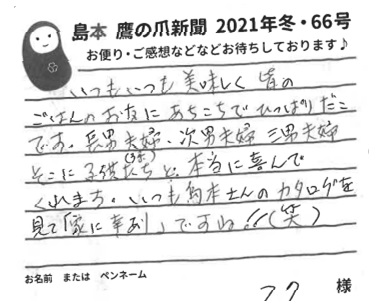 島本 鷹の爪新聞 2021年冬・66号
お便り・ご感想などなどお待ちしております♪
いつもいつも美味しく皆の
ごはんのお友にあちこちでひっぱりだこ
です。長男夫婦、次男夫婦 三男夫婦
そこに子供たちと、本当に喜んで
くれます。いつも島本さんのカタログを
見て「家に
ですね!!(笑)
お名前 または ペンネーム
様